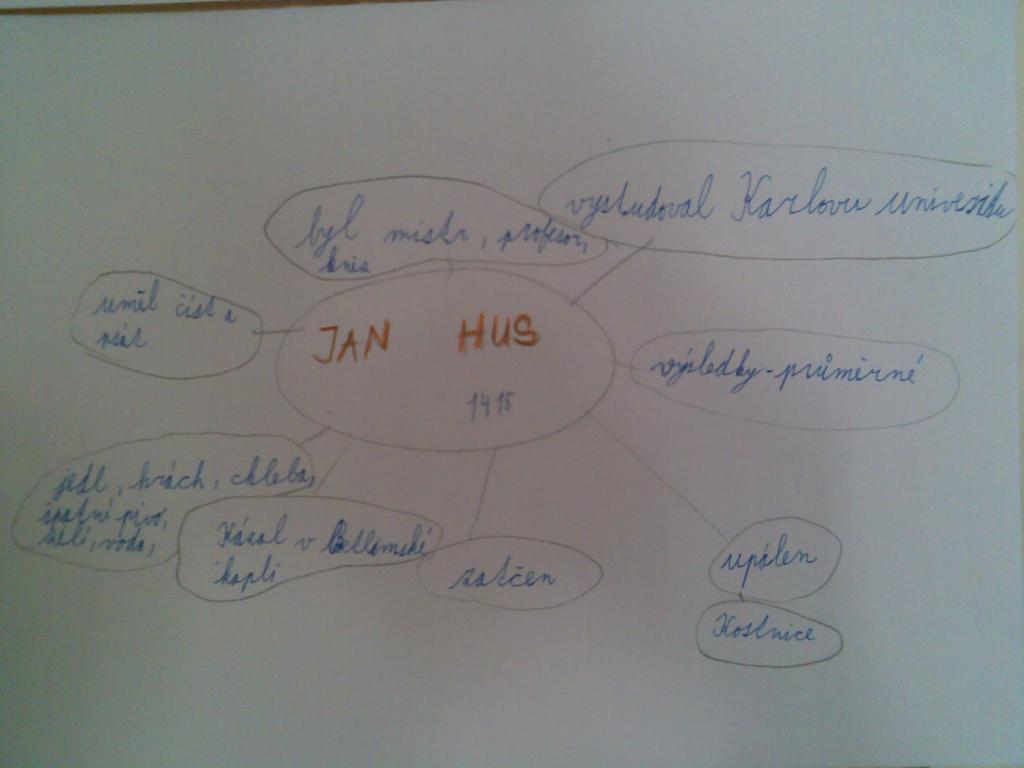 vystudoval Karlovu univesitu
byl mistr, profesor,
uměl číst a
psát
JAN HUS
1415
výsledky - průměrné
jedl, hrách, chleba,
špatné pivo,
zelí, voda,
Kásal v Betlémské
kapli
zatčen
upálen
Kostnice